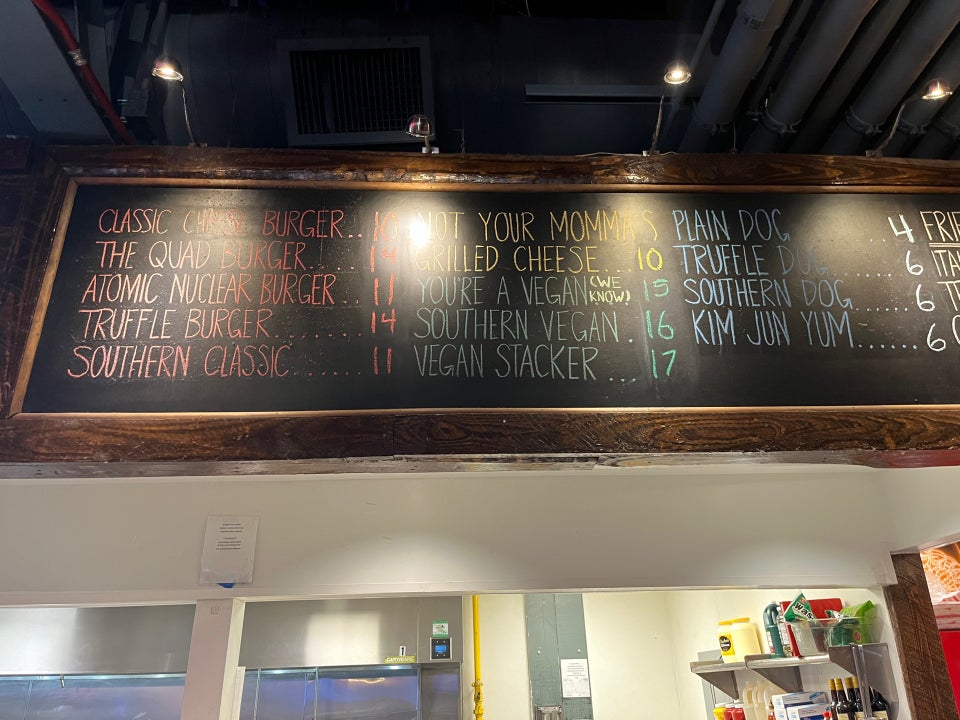 CLASSIC CHEESE BURGER.. 10
THE QUAD BURGER...... 14
ATOMIC NUCLEAR BURGER.... 11
TRUFFLE BURGER.......... 14
SOUTHERN CLASSIC....... 11
NOT YOUR MOMMA'S
GRILLED CHEESE... 10
YOU'RE A VEGAN (WE KNOW) 15
SOUTHERN VEGAN. 16
VEGAN STACKER... 17
PLAIN DOG ... 4
TRUFFLE DOG... 6
SOUTHERN DOG ... 6
KIM JUN YUM...... 6